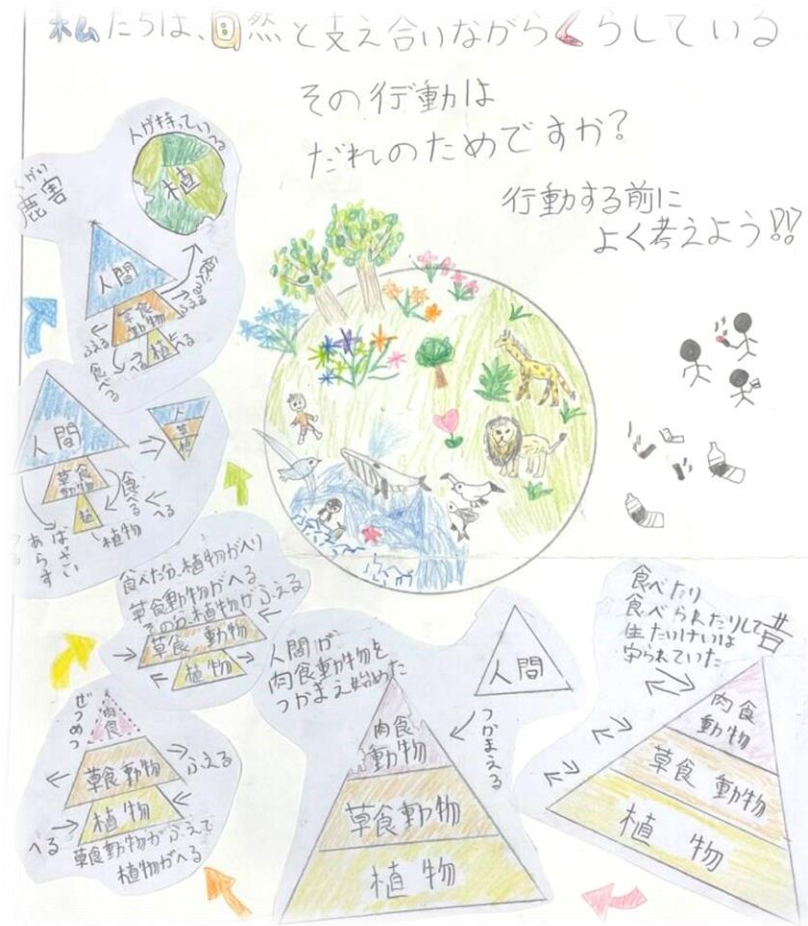 私たちは、自然と支え合いながらくらしている
その行動は
だれのためですか?
行動する前に
よく考えよう!!
人が持っている
植
鹿害
人間
食べる
草食
動物
ふえる
ふえる
植
へる
食べる
人間
草食
動物
植
食べる
へる
植物
ばっさい
あらす
人
草
植
食べた分、植物がへり
草食動物がへる
その分、植物がふえる
草食動物
植物
ぜつめつ
肉食
草食動物
ふえる
植物
へる
草食動物がふえて
植物がへる
人間が
肉食動物を
つかまえ始めた
人間
つかまえる
肉食
動物
草食動物
植物
食べたり
食べられたりして
生たいけいは
守られていた
昔
肉食
動物
草食動物
植物